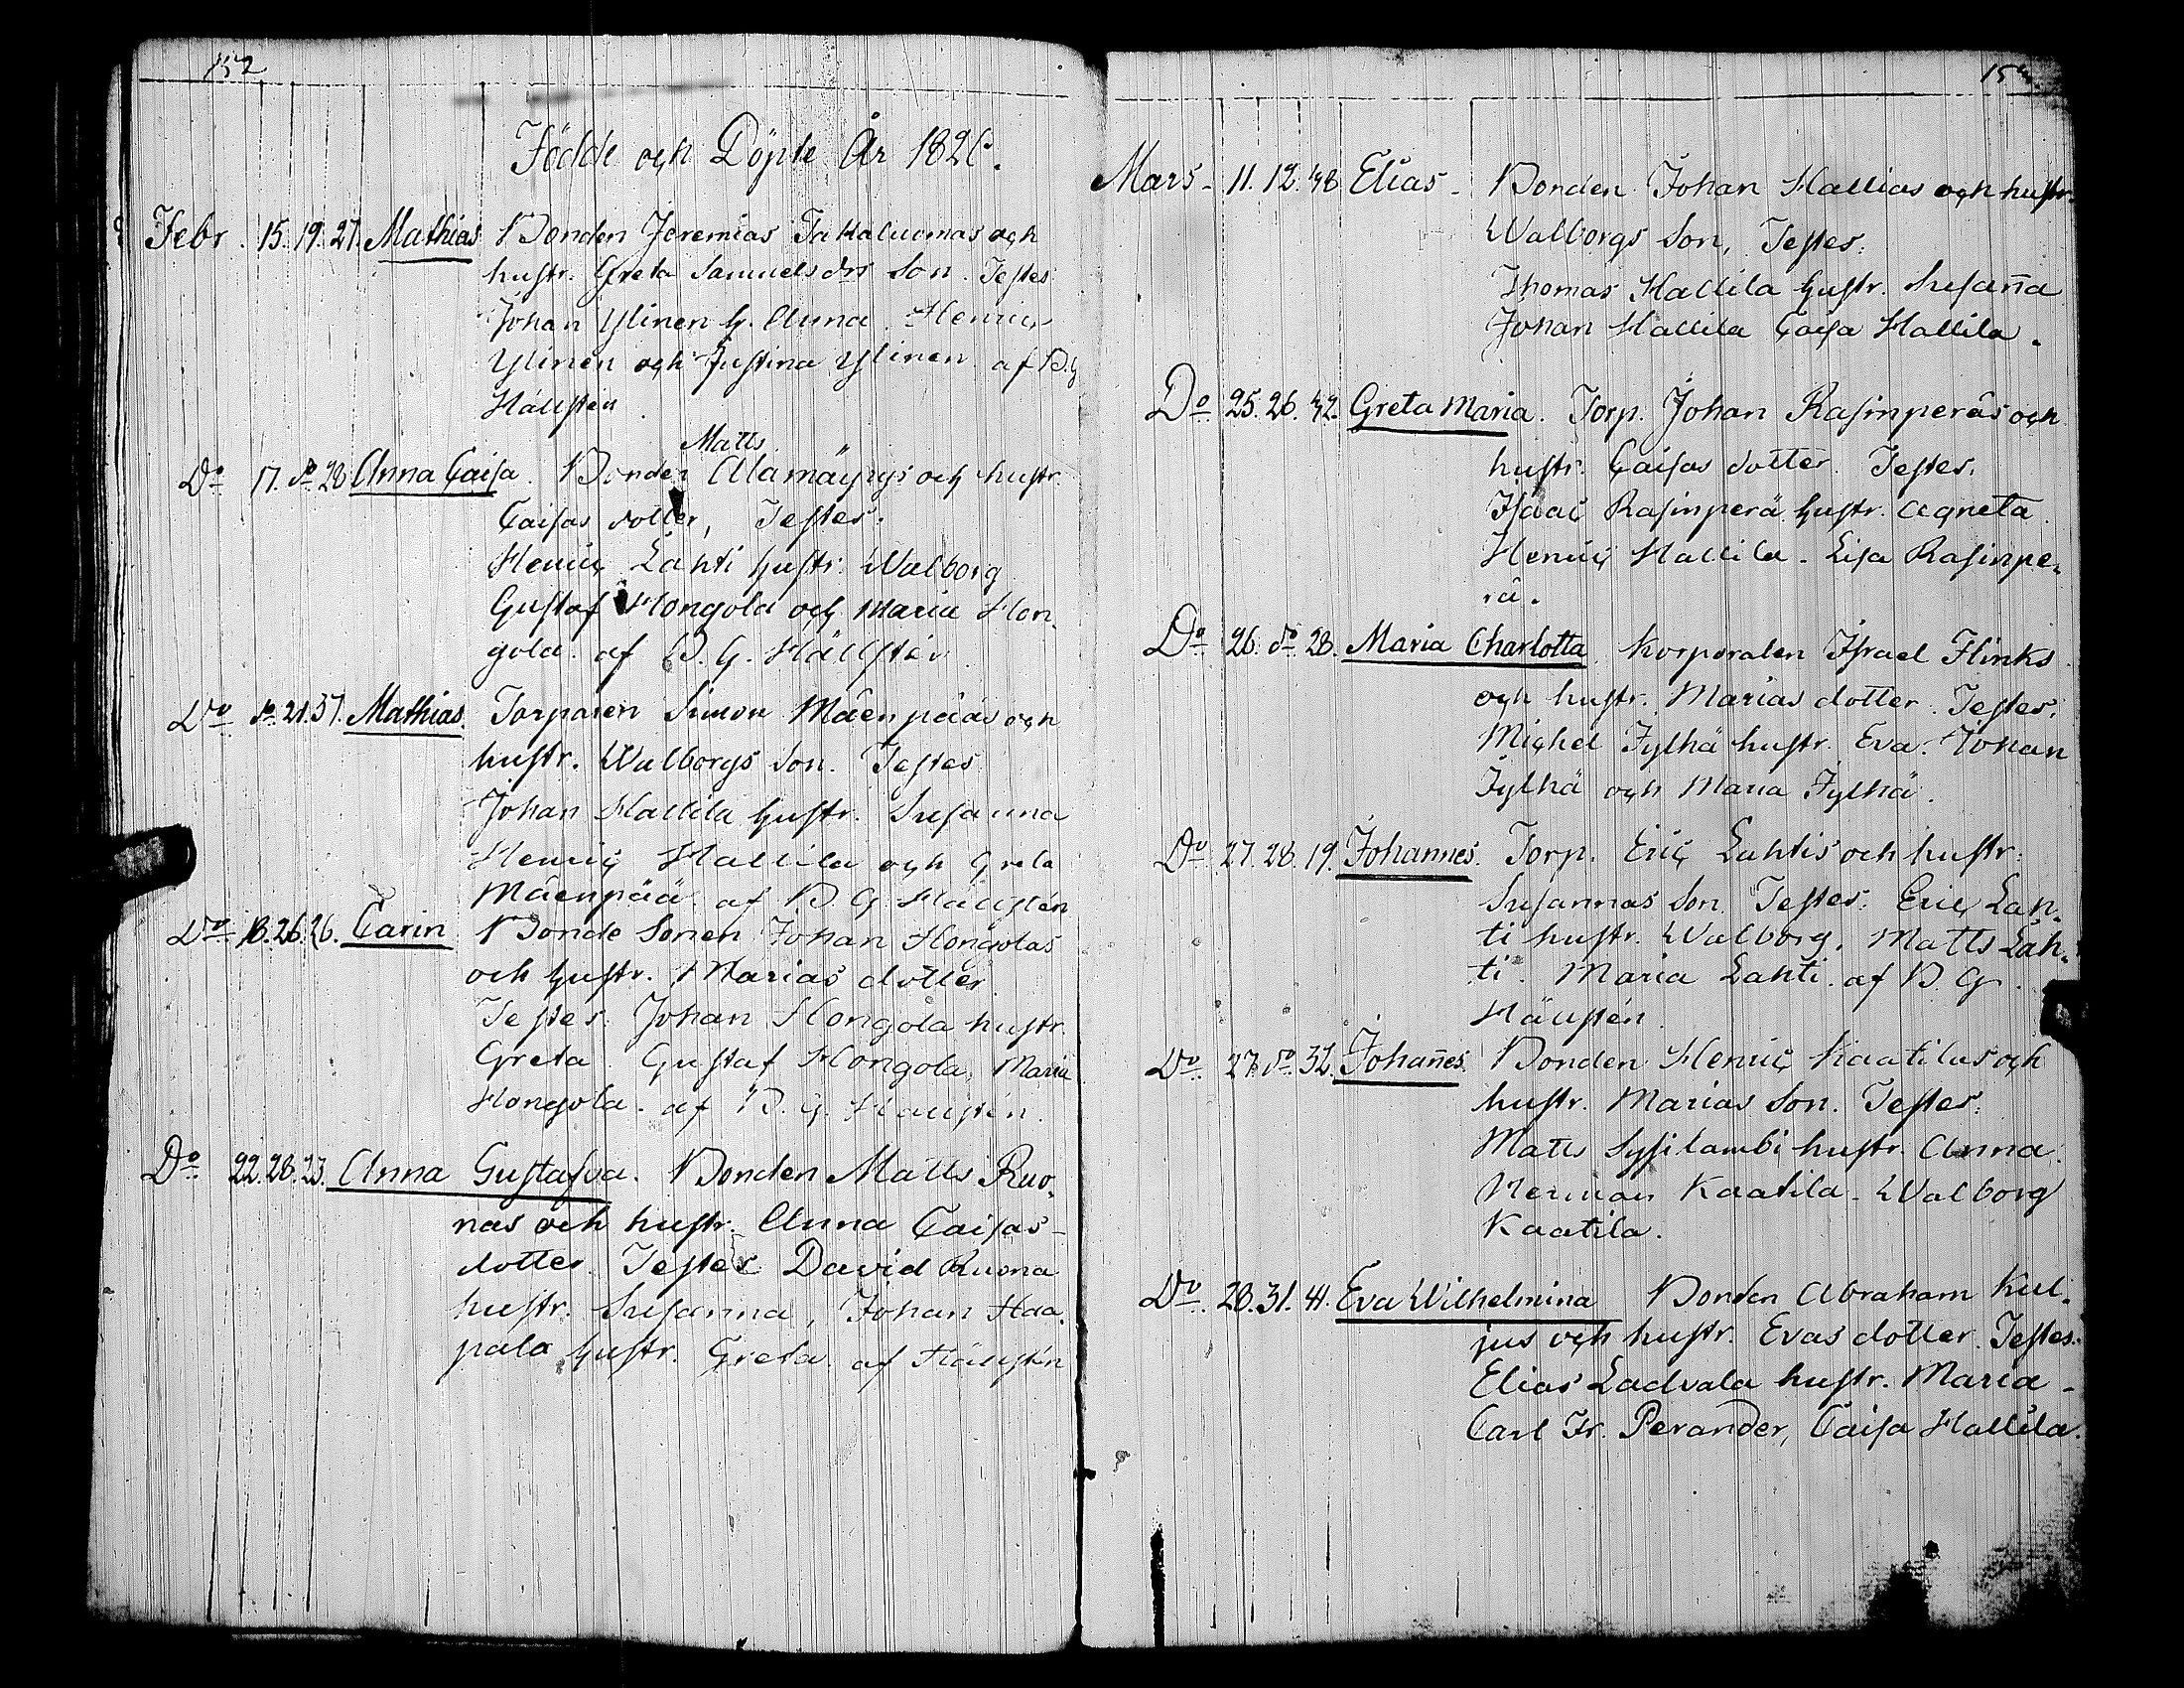 152
Födde och Döpte År 1826.
Febr. 15. 19. 27. Mathias Bonden Jeremias Takaluomas och
hustr. Greta Samuelsdrs Son. Testes
Johan Ylinen h. Anna. Henric
Ylinen och Justina Ylinen af B. G
Hällsten
Matts
Do 17. do 28 Anna Caisa. Bonden Alamäyrys och hustr.
Caisas dotter, Testes.
Henric Lahti hustr. Walborg
Gustaf Hongola och Maria Hon-
gola. af B. G. Hällsten
Do do. 21. 37. Mathias. Torparen Simon Mäenpääs och
hustr. Walborgs Son. Testes
Johan Hallila hustr. Susanna
Henric Hallila och Greta
Mäenpää. af B. G. Hällstén
Do 18. 26. 26. Carin Bonde Sonen Johan Hongolas
och hustr. Marias dotter
Testes. Johan Hongola hustr.
Greta. Gustaf Hongola, Maria
Hongola. af B. G. Hällstén.
Do 22. 28. 23. Anna Gustafva. Bonden Matts Ruo-
nas och hustr. Anna Caisas-
dotter. Testes David Ruona
hustr. Susanna, Johan Haa-
pala hustr. Greta. af Hällstén
Mars - 11. 12. 48 Elias - Bonden Johan Hallias och hustr.
Walborgs Son, Testes.
Thomas Hallila hustr. Susan̄a
Johan Hallila Caisa Hallila.
Do 25. 26. 42. Greta Maria. Torp. Johan Rasinperäs och
hustr. Caisas dotter. Testes.
Isaac Rasinperä hustr. Agneta
Henric Hallila. Lisa Rasinpe-
rä.
Do 26. do 28. Maria Charlotta. Korporalen Israel Flinks
och hustr. Marias dotter. Testes.
Michel Jylhä hustr. Eva. Johan
Jylhä och Maria Jylhä.
Do 27. 28. 19. Johannes. Torp. Eric Lahtis och hustr.
Susannas Son. Testes. Eric Lah-
ti hustr. Walborg. Matts Lah-
ti. Maria Lahti. af B. G.
Hällstén
Do 27. do. 32. Johan̄es. Bonden Henric Kaatilas och
hustr. Marias Son. Testes.
Matts Sysilambi hustr. Anna
Herman Kaatila. Walborg
Kaatila.
Do 28. 31. 41. Eva Wilhelmina Bonden Abraham Kul-
jus och hustr. Evas dotter. Testes.
Elias Ladvala hustr. Maria -
Carl Fr. Perander, Caisa Hallila.